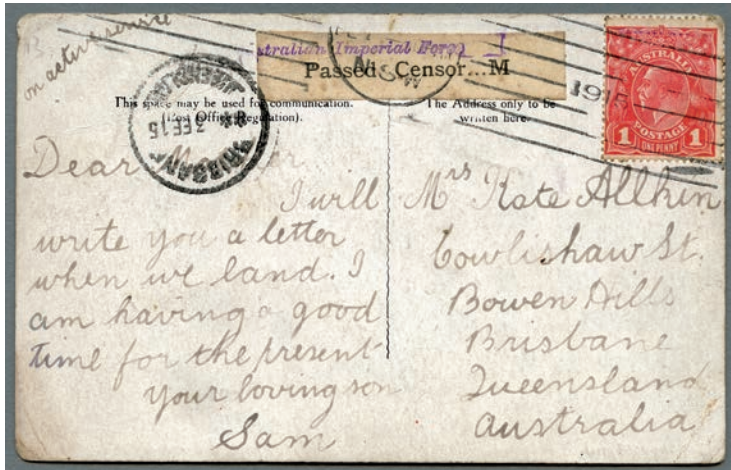 on active service
Australian Imperial Force
Passed Censor...M
N.S.W
1915
This space may be used for communication.
(Post Office Regulation).
The Address only to be
written here.
AUSTRALIA
1 POSTAGE 1
ONE PENNY
BRISBANE
3 FE 15
QUEENSLAND
Dear Mother
I will
write you a letter
when we land. I
am having a good
time for the present
Your loving son
Sam
Mrs Kate Allkin
Cowlishaw St.
Bowen Hills
Brisbane
Queensland
Australia